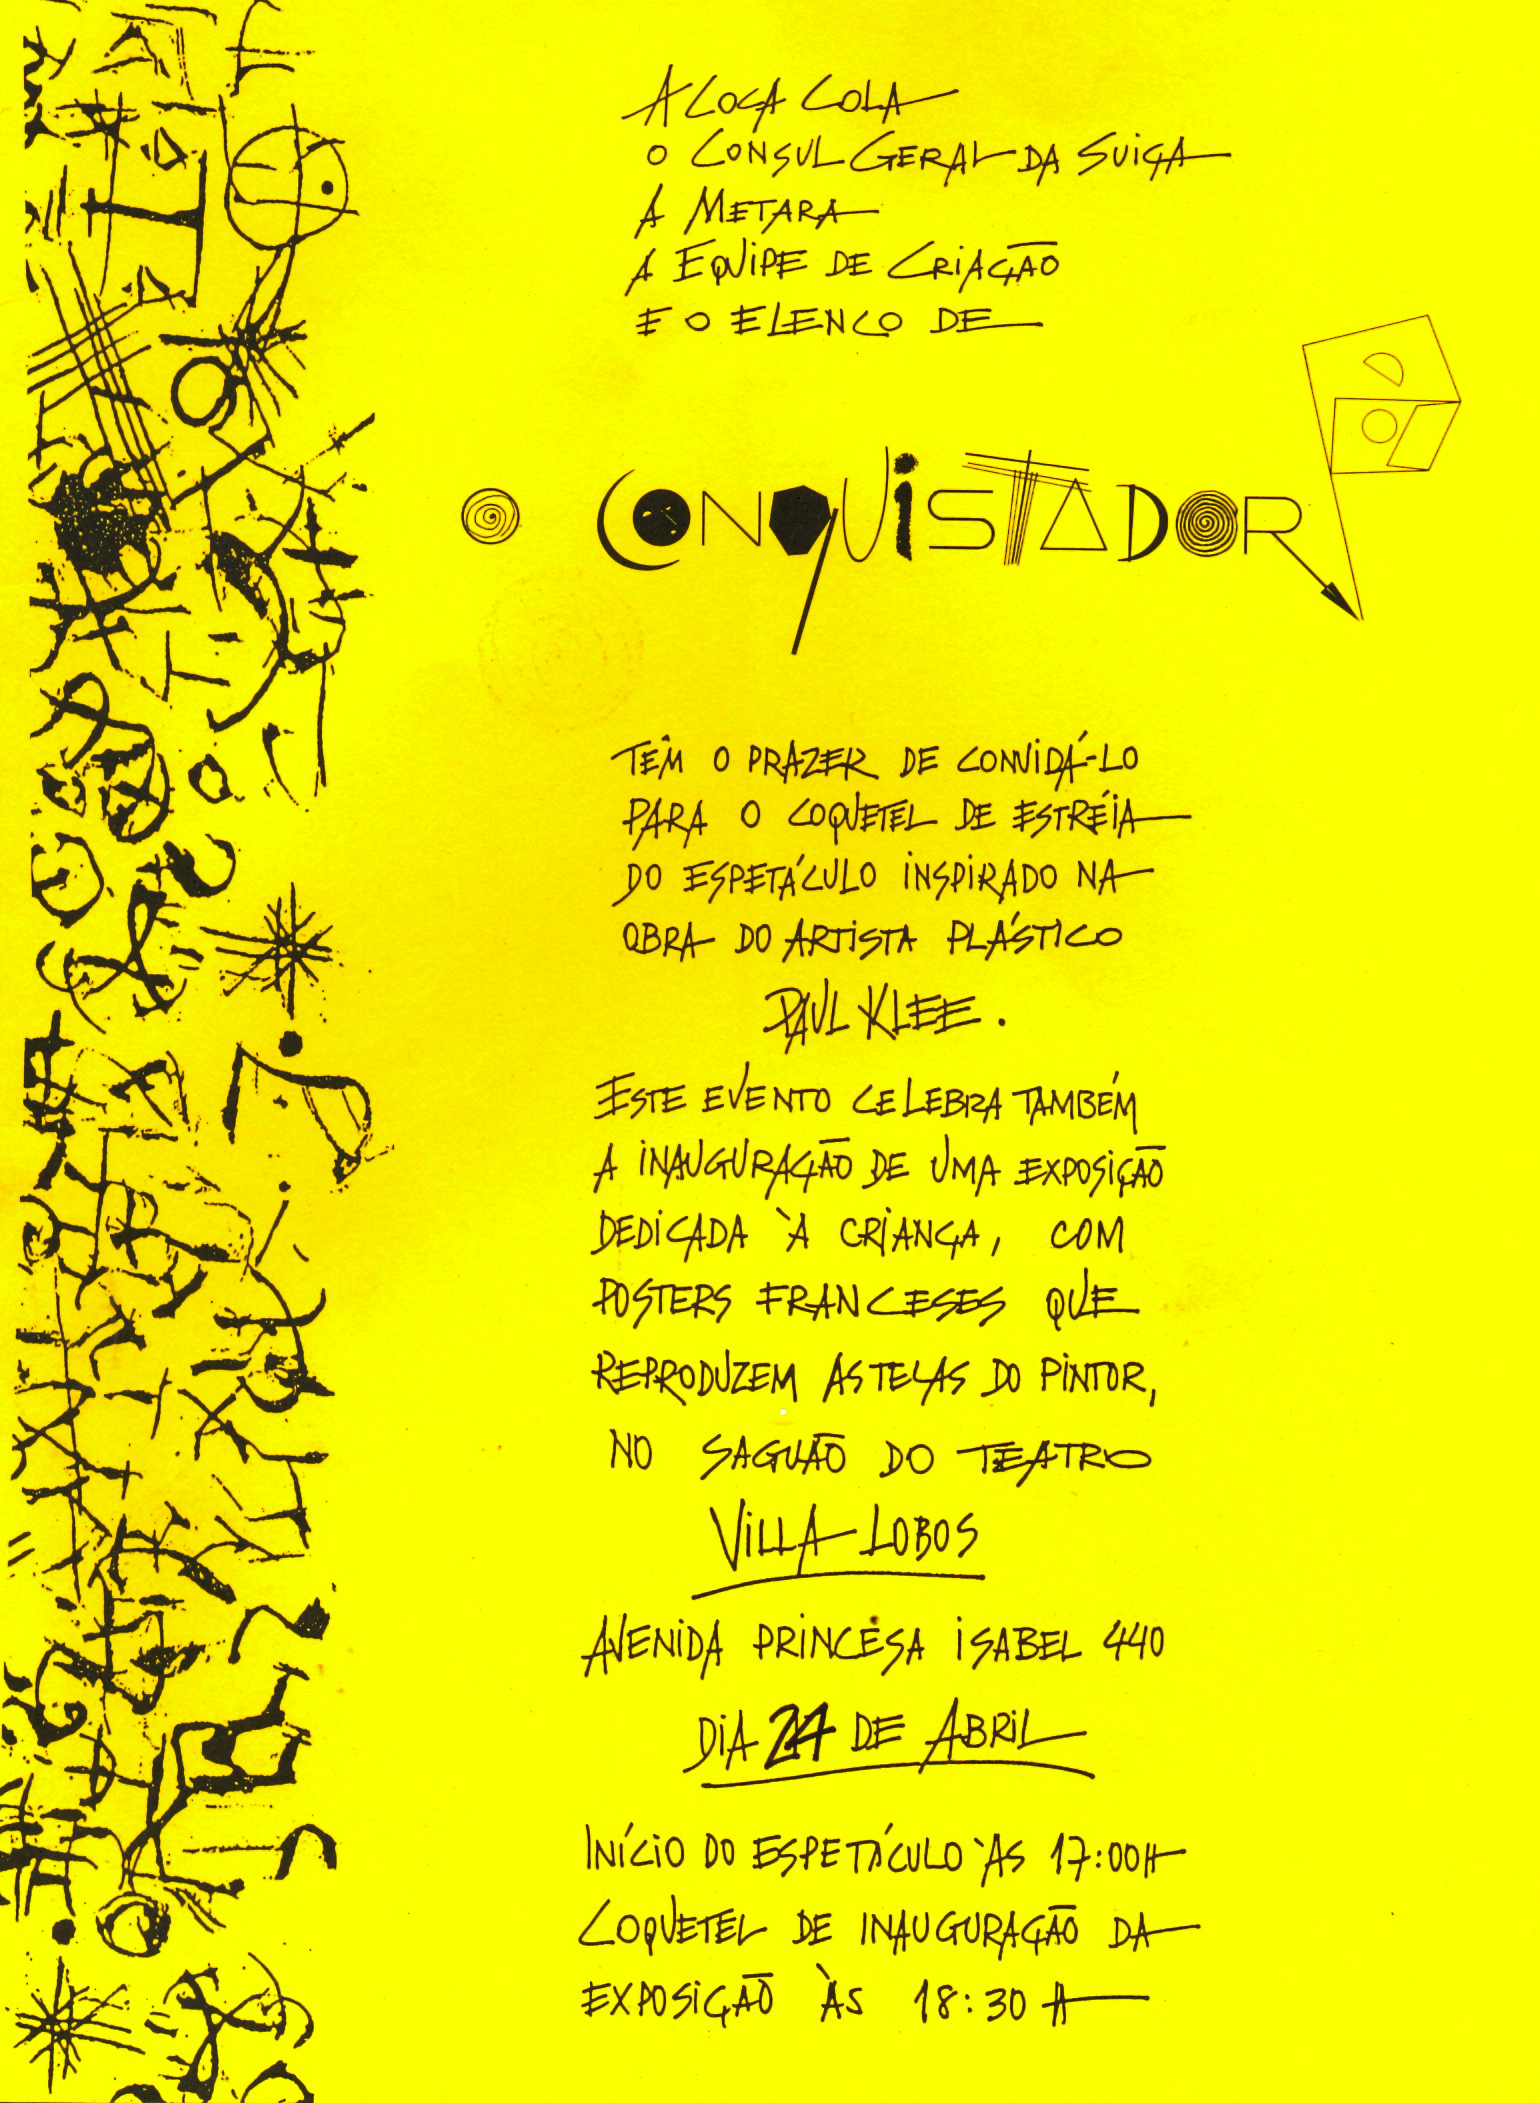 A COCA COLA
O CONSUL GERAL DA SUIÇA
A METARA
A EQUIPE DE CRIAÇÃO
E O ELENCO DE
O CONQUISTADOR
TÊM O PRAZER DE CONVIDÁ-LO
PARA O COQUETEL DE ESTRÉIA
DO ESPETÁCULO INSPIRADO NA
OBRA DO ARTISTA PLÁSTICO
PAUL KLEE.
ESTE EVENTO CELEBRA TAMBÉM
A INAUGURAÇÃO DE UMA EXPOSIÇÃO
DEDICADA À CRIANÇA, COM
POSTERS FRANCESES QUE
REPRODUZEM AS TELAS DO PINTOR,
NO SAGUÃO DO TEATRO
VILLA-LOBOS
AVENIDA PRINCESA ISABEL 440
DIA 24 DE ABRIL
INÍCIO DO ESPETÁCULO ÀS 17:00H
COQUETEL DE INAUGURAÇÃO DA
EXPOSIÇÃO ÀS 18:30 H